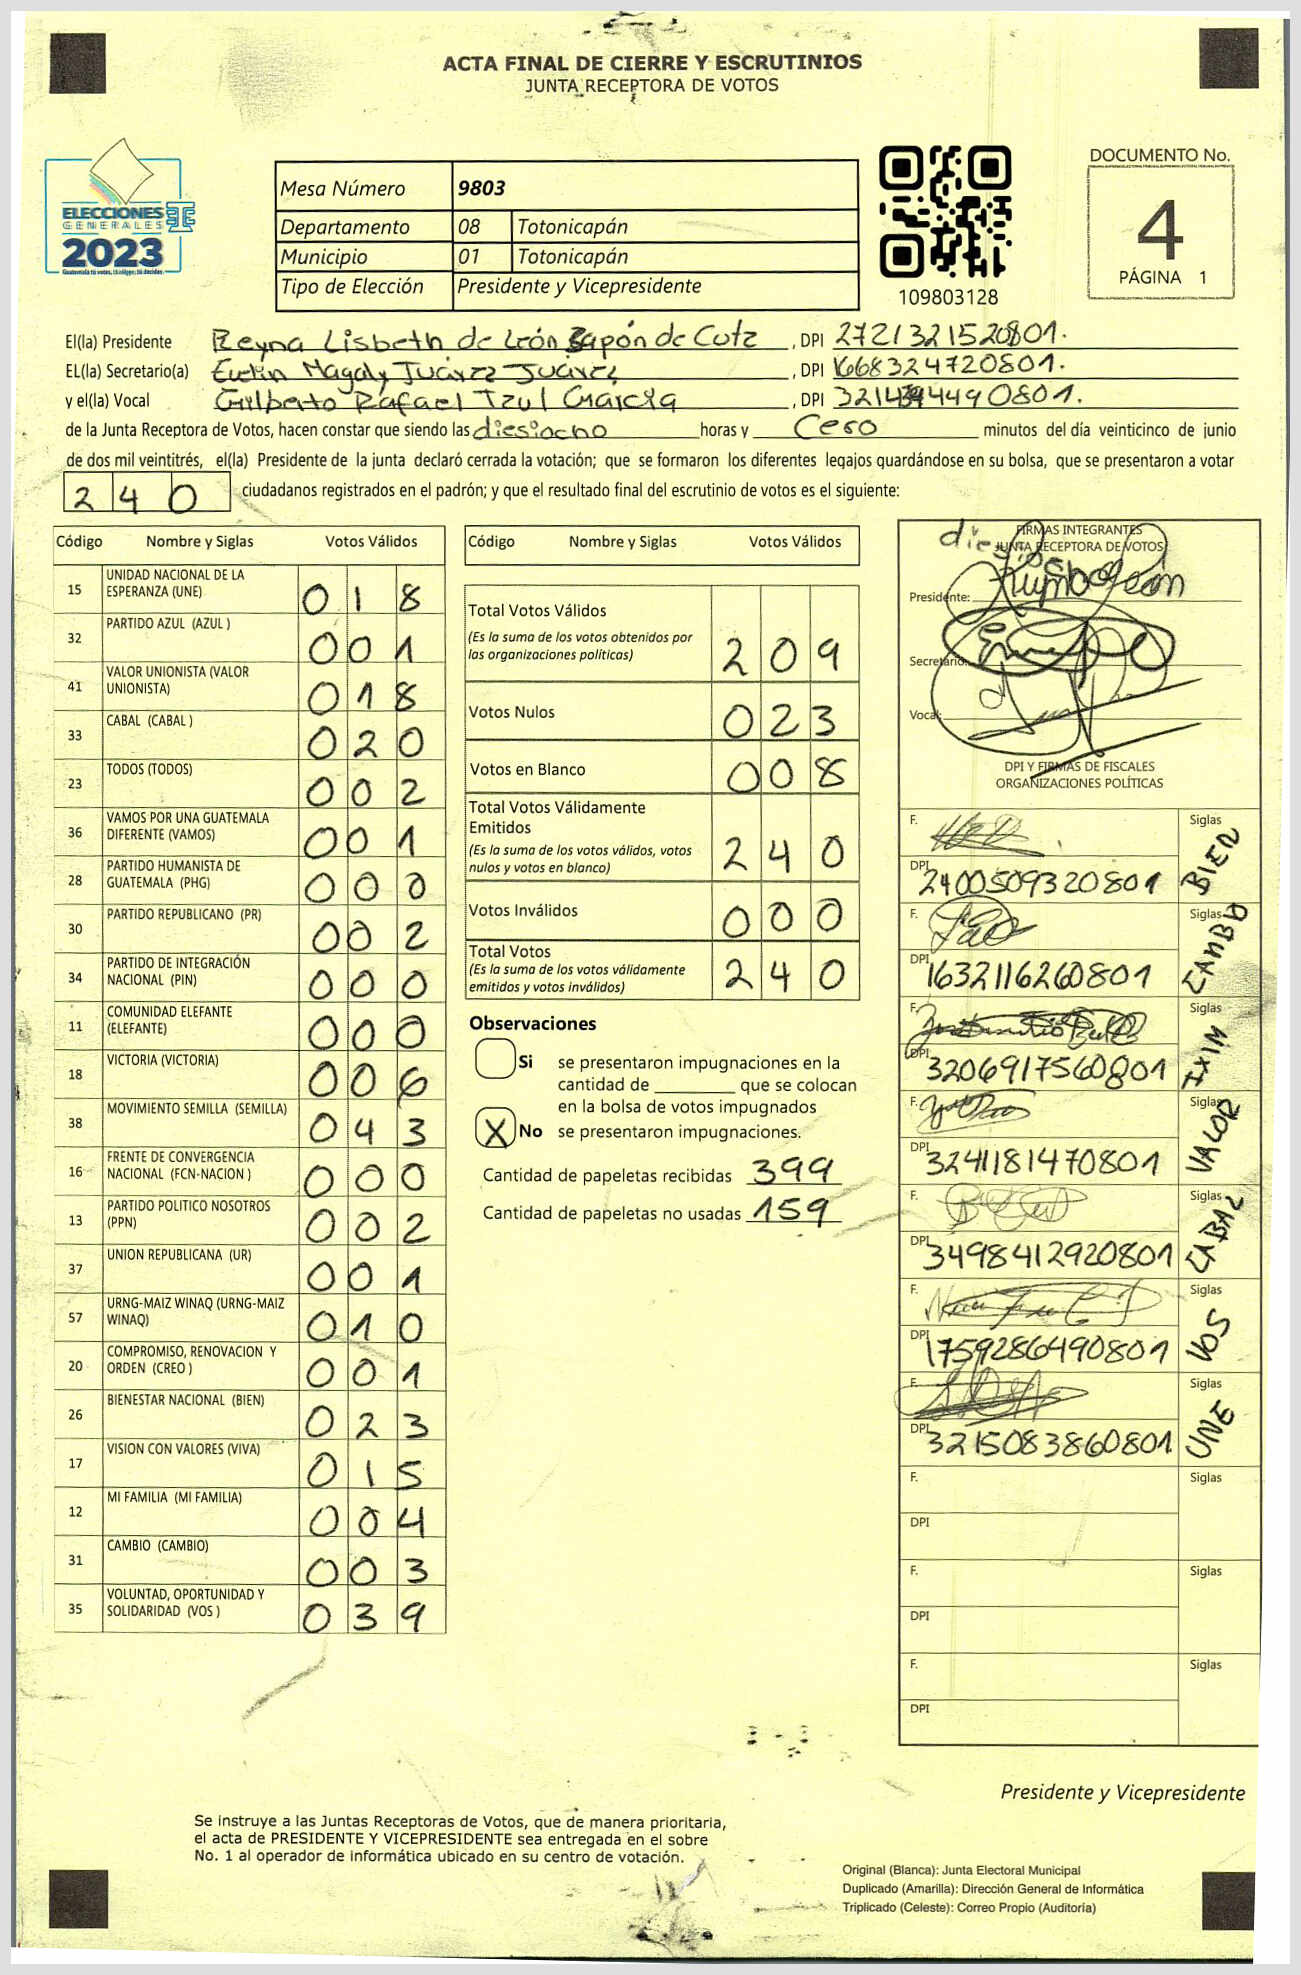 ACTA FINAL DE CIERRE Y ESCRUTINIOS
JUNTA RECEPTORA DE VOTOS
ELECCIONES
GENERALES
2023
Mesa Número 9803
Departamento 08 Totonicapán
Municipio 01 Totonicapán
Tipo de Elección Presidente y Vicepresidente
109803128
DOCUMENTO No.
4
PÁGINA 1
El(la) Presidente Reyna Lisbeth de León Sapón de Cutz, DPI 2721321520801.
EL(la) Secretario(a) Evelin Magaly Juárez Juárez, DPI 1668324720801.
y el(la) Vocal Gilberto Rafael Tzul García, DPI
de la Junta Receptora de Votos, hacen constar que siendo las diesiocho horas y Cero minutos del día veinticinco de junio
de dos mil veintitrés, el(la) Presidente de la junta declaró cerrada la votación; que se formaron los diferentes legajos guardándose en su bolsa, que se presentaron a votar
240 ciudadanos registrados en el padrón; y que el resultado final del escrutinio de votos es el siguiente:
Código Nombre y Siglas Votos Válidos
15 UNIDAD NACIONAL DE LA ESPERANZA (UNE) 018
32 PARTIDO AZUL (AZUL ) 001
41 VALOR UNIONISTA (VALOR UNIONISTA) 018
33 CABAL (CABAL ) 020
23 TODOS (TODOS) 002
36 VAMOS POR UNA GUATEMALA DIFERENTE (VAMOS) 001
28 PARTIDO HUMANISTA DE GUATEMALA (PHG) 000
30 PARTIDO REPUBLICANO (PR) 002
34 PARTIDO DE INTEGRACIÓN NACIONAL (PIN) 000
11 COMUNIDAD ELEFANTE (ELEFANTE) 000
18 VICTORIA (VICTORIA) 006
38 MOVIMIENTO SEMILLA (SEMILLA) 043
16 FRENTE DE CONVERGENCIA NACIONAL (FCN-NACION ) 000
13 PARTIDO POLITICO NOSOTROS (PPN) 002
37 UNION REPUBLICANA (UR) 001
57 URNG-MAIZ WINAQ (URNG-MAIZ WINAQ) 010
20 COMPROMISO, RENOVACION Y ORDEN (CREO ) 001
26 BIENESTAR NACIONAL (BIEN) 023
17 VISION CON VALORES (VIVA) 015
12 MI FAMILIA (MI FAMILIA) 004
31 CAMBIO (CAMBIO) 003
35 VOLUNTAD, OPORTUNIDAD Y SOLIDARIDAD (VOS ) 039
Código Nombre y Siglas Votos Válidos
Total Votos Válidos 209
(Es la suma de los votos obtenidos por
las organizaciones políticas)
Votos Nulos 023
Votos en Blanco 008
Total Votos Válidamente
Emitidos 240
(Es la suma de los votos válidos, votos
nulos y votos en blanco)
Votos Inválidos 000
Total Votos 240
(Es la suma de los votos válidamente
emitidos y votos inválidos)
Observaciones
Si se presentaron impugnaciones en la
cantidad de ________ que se colocan
en la bolsa de votos impugnados
X No se presentaron impugnaciones.
Cantidad de papeletas recibidas 399
Cantidad de papeletas no usadas 159
FIRMAS INTEGRANTES
JUNTA RECEPTORA DE VOTOS
Presidente:
Secretario:
Vocal:
DPI Y FIRMAS DE FISCALES
ORGANIZACIONES POLÍTICAS
F. Siglas BIEN
DPI 2400509320801
F. Siglas CAMBIO
DPI 1632116260801
F. Siglas IXIM
DPI 3206917560801
F. Siglas VALOR
DPI 3241181470801
F. Siglas CABAL
DPI 3498412920801
F. Siglas VOS
DPI 1759286490801
F. Siglas UNE
DPI 3215083860801
F. Siglas
DPI
F. Siglas
DPI
F. Siglas
DPI
Presidente y Vicepresidente
Se instruye a las Juntas Receptoras de Votos, que de manera prioritaria,
el acta de PRESIDENTE Y VICEPRESIDENTE sea entregada en el sobre
No. 1 al operador de informática ubicado en su centro de votación.
Original (Blanca): Junta Electoral Municipal
Duplicado (Amarilla): Dirección General de Informática
Triplicado (Celeste): Correo Propio (Auditoría)